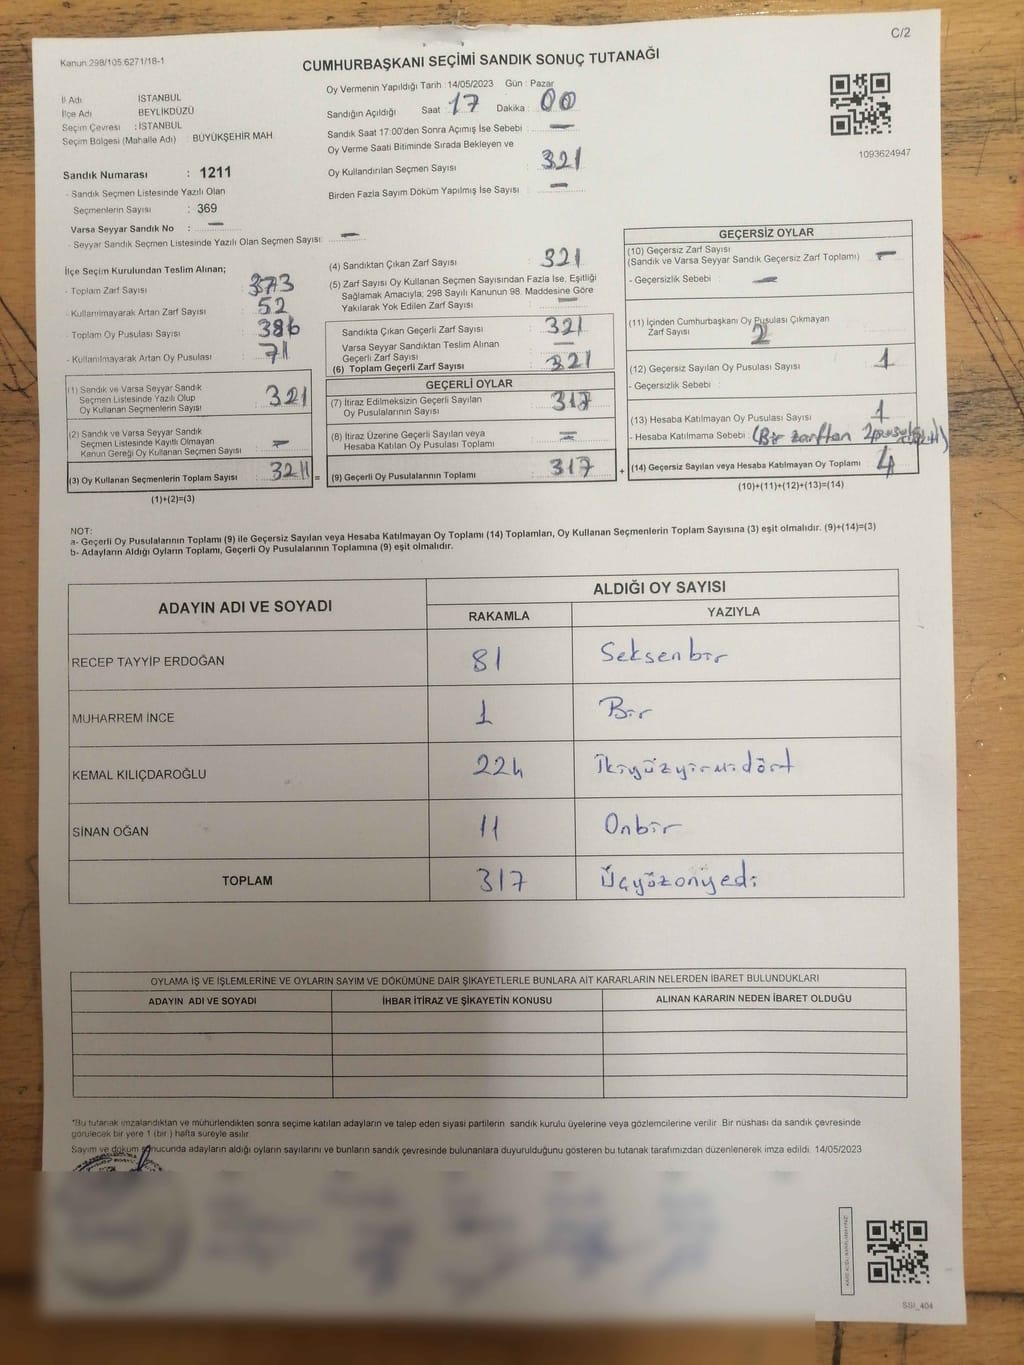 C/2
Kanun 298/105.6271/18-1
CUMHURBAŞKANI SEÇİMİ SANDIK SONUÇ TUTANAĞI
İl Adı İSTANBUL
İlçe Adı BEYLİKDÜZÜ
Seçim Çevresi : İSTANBUL
Seçim Bölgesi (Mahalle Adı) BÜYÜKŞEHİR MAH.
Sandık Numarası : 1211
- Sandık Seçmen Listesinde Yazılı Olan
Seçmenlerin Sayısı : 369
Varsa Seyyar Sandık No : —
- Seyyar Sandık Seçmen Listesinde Yazılı Olan Seçmen Sayısı: —
Oy Vermenin Yapıldığı Tarih : 14/05/2023 Gün : Pazar
Sandığın Açıldığı Saat 17 Dakika : 00
Sandık Saat 17:00'den Sonra Açımış İse Sebebi : —
Oy Verme Saati Bitiminde Sırada Bekleyen ve
Oy Kullandırılan Seçmen Sayısı : 321
Birden Fazla Sayım Döküm Yapılmış İse Sayısı : —
1093624947
İlçe Seçim Kurulundan Teslim Alınan;
- Toplam Zarf Sayısı : 373
- Kullanılmayarak Artan Zarf Sayısı : 52
Toplam Oy Pusulası Sayısı : 386
- Kullanılmayarak Artan Oy Pusulası : 71
(1) Sandık ve Varsa Seyyar Sandık
Seçmen Listesinde Yazılı Olup
Oy Kullanan Seçmenlerin Sayısı : 321
(2) Sandık ve Varsa Seyyar Sandık
Seçmen Listesinde Kayıtlı Olmayan
Kanun Gereği Oy Kullanan Seçmen Sayısı : —
(3) Oy Kullanan Seçmenlerin Toplam Sayısı : 321
(1)+(2)=(3)
(4) Sandıktan Çıkan Zarf Sayısı : 321
(5) Zarf Sayısı Oy Kullanan Seçmen Sayısından Fazla İse, Eşitliği
Sağlamak Amacıyla; 298 Sayılı Kanunun 98. Maddesine Göre
Yakılarak Yok Edilen Zarf Sayısı : —
Sandıkta Çıkan Geçerli Zarf Sayısı : 321
Varsa Seyyar Sandıktan Teslim Alınan
Geçerli Zarf Sayısı : —
(6) Toplam Geçerli Zarf Sayısı : 321
GEÇERLİ OYLAR
(7) İtiraz Edilmeksizin Geçerli Sayılan
Oy Pusulalarının Sayısı : 317
(8) İtiraz Üzerine Geçerli Sayılan veya
Hesaba Katılan Oy Pusulası Toplamı : —
= (9) Geçerli Oy Pusulalarının Toplamı : 317 +
GEÇERSİZ OYLAR
(10) Geçersiz Zarf Sayısı
(Sandık ve Varsa Seyyar Sandık Geçersiz Zarf Toplamı) : —
- Geçersizlik Sebebi : —
(11) İçinden Cumhurbaşkanı Oy Pusulası Çıkmayan
Zarf Sayısı : 2
(12) Geçersiz Sayılan Oy Pusulası Sayısı : 1
- Geçersizlik Sebebi :
(13) Hesaba Katılmayan Oy Pusulası Sayısı : 1
- Hesaba Katılmama Sebebi : (Bir zarftan 2 pusula
(14) Geçersiz Sayılan veya Hesaba Katılmayan Oy Toplamı : 4
(10)+(11)+(12)+(13)=(14)
NOT:
a- Geçerli Oy Pusulalarının Toplamı (9) ile Geçersiz Sayılan veya Hesaba Katılmayan Oy Toplamı (14) Toplamları, Oy Kullanan Seçmenlerin Toplam Sayısına (3) eşit olmalıdır. (9)+(14)=(3)
b- Adayların Aldığı Oyların Toplamı, Geçerli Oy Pusulalarının Toplamına (9) eşit olmalıdır.
ADAYIN ADI VE SOYADI ALDIĞI OY SAYISI
RAKAMLA YAZIYLA
RECEP TAYYİP ERDOĞAN 81 Seksenbir
MUHARREM İNCE 1 Bir
KEMAL KILIÇDAROĞLU 224 İkiyüzyirmidört
SİNAN OĞAN 11 Onbir
TOPLAM 317 Üçyüzonyedi
OYLAMA İŞ VE İŞLEMLERİNE VE OYLARIN SAYIM VE DÖKÜMÜNE DAİR ŞİKAYETLERLE BUNLARA AİT KARARLARIN NELERDEN İBARET BULUNDUKLARI
ADAYIN ADI VE SOYADI İHBAR İTİRAZ VE ŞİKAYETİN KONUSU ALINAN KARARIN NEDEN İBARET OLDUĞU
*Bu tutanak imzalandıktan ve mühürlendikten sonra seçime katılan adayların ve talep eden siyasi partilerin sandık kurulu üyelerine veya gözlemcilerine verilir. Bir nüshası da sandık çevresinde
görülecek bir yere 1 (bir ) hafta süreyle asılır.
Sayım ve döküm sonucunda adayların aldığı oyların sayılarını ve bunların sandık çevresinde bulunanlara duyurulduğunu gösteren bu tutanak tarafımızdan düzenlenerek imza edildi. 14/05/2023
SSI_404